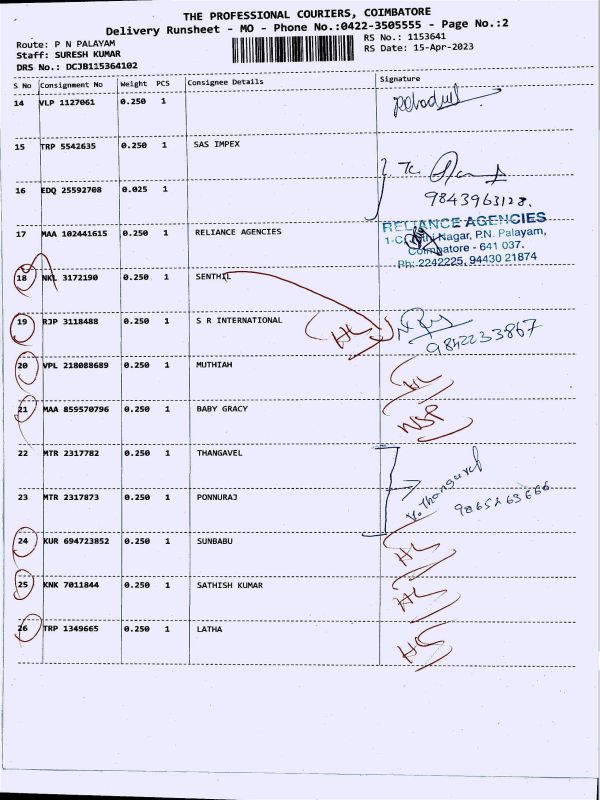 THE PROFESSIONAL COURIERS, COIMBATORE
Delivery Runsheet - MO - Phone No.:0422-3505555 - Page No.:2
Route: P N PALAYAM
Staff: SURESH KUMAR
DRS No.: DCJB115364102
RS No.: 1153641
RS Date: 15-Apr-2023
S No Consignment No Weight PCS Consignee Details Signature
14 VLP 1127061 0.250 1
15 TRP 5542635 0.250 1 SAS IMPEX
16 EDQ 25592708 0.025 1
9843963128.
17 MAA 102441615 0.250 1 RELIANCE AGENCIES
RELIANCE AGENCIES
Nagar, P.N. Palayam,
Coimbatore - 641 037.
Ph: 2242225, 94430 21874
18 NKL 3172190 0.250 1 SENTHIL
19 RJP 3118488 0.250 1 S R INTERNATIONAL
HL
9842233867
20 VPL 218088689 0.250 1 MUTHIAH
HL
21 MAA 859570796 0.250 1 BABY GRACY
NSP
22 MTR 2317782 0.250 1 THANGAVEL
23 MTR 2317873 0.250 1 PONNURAJ
V. Thangavel
9865263666
24 KUR 694723852 0.250 1 SUNBABU
HL
25 KNK 7011844 0.250 1 SATHISH KUMAR
HL
26 TRP 1349665 0.250 1 LATHA